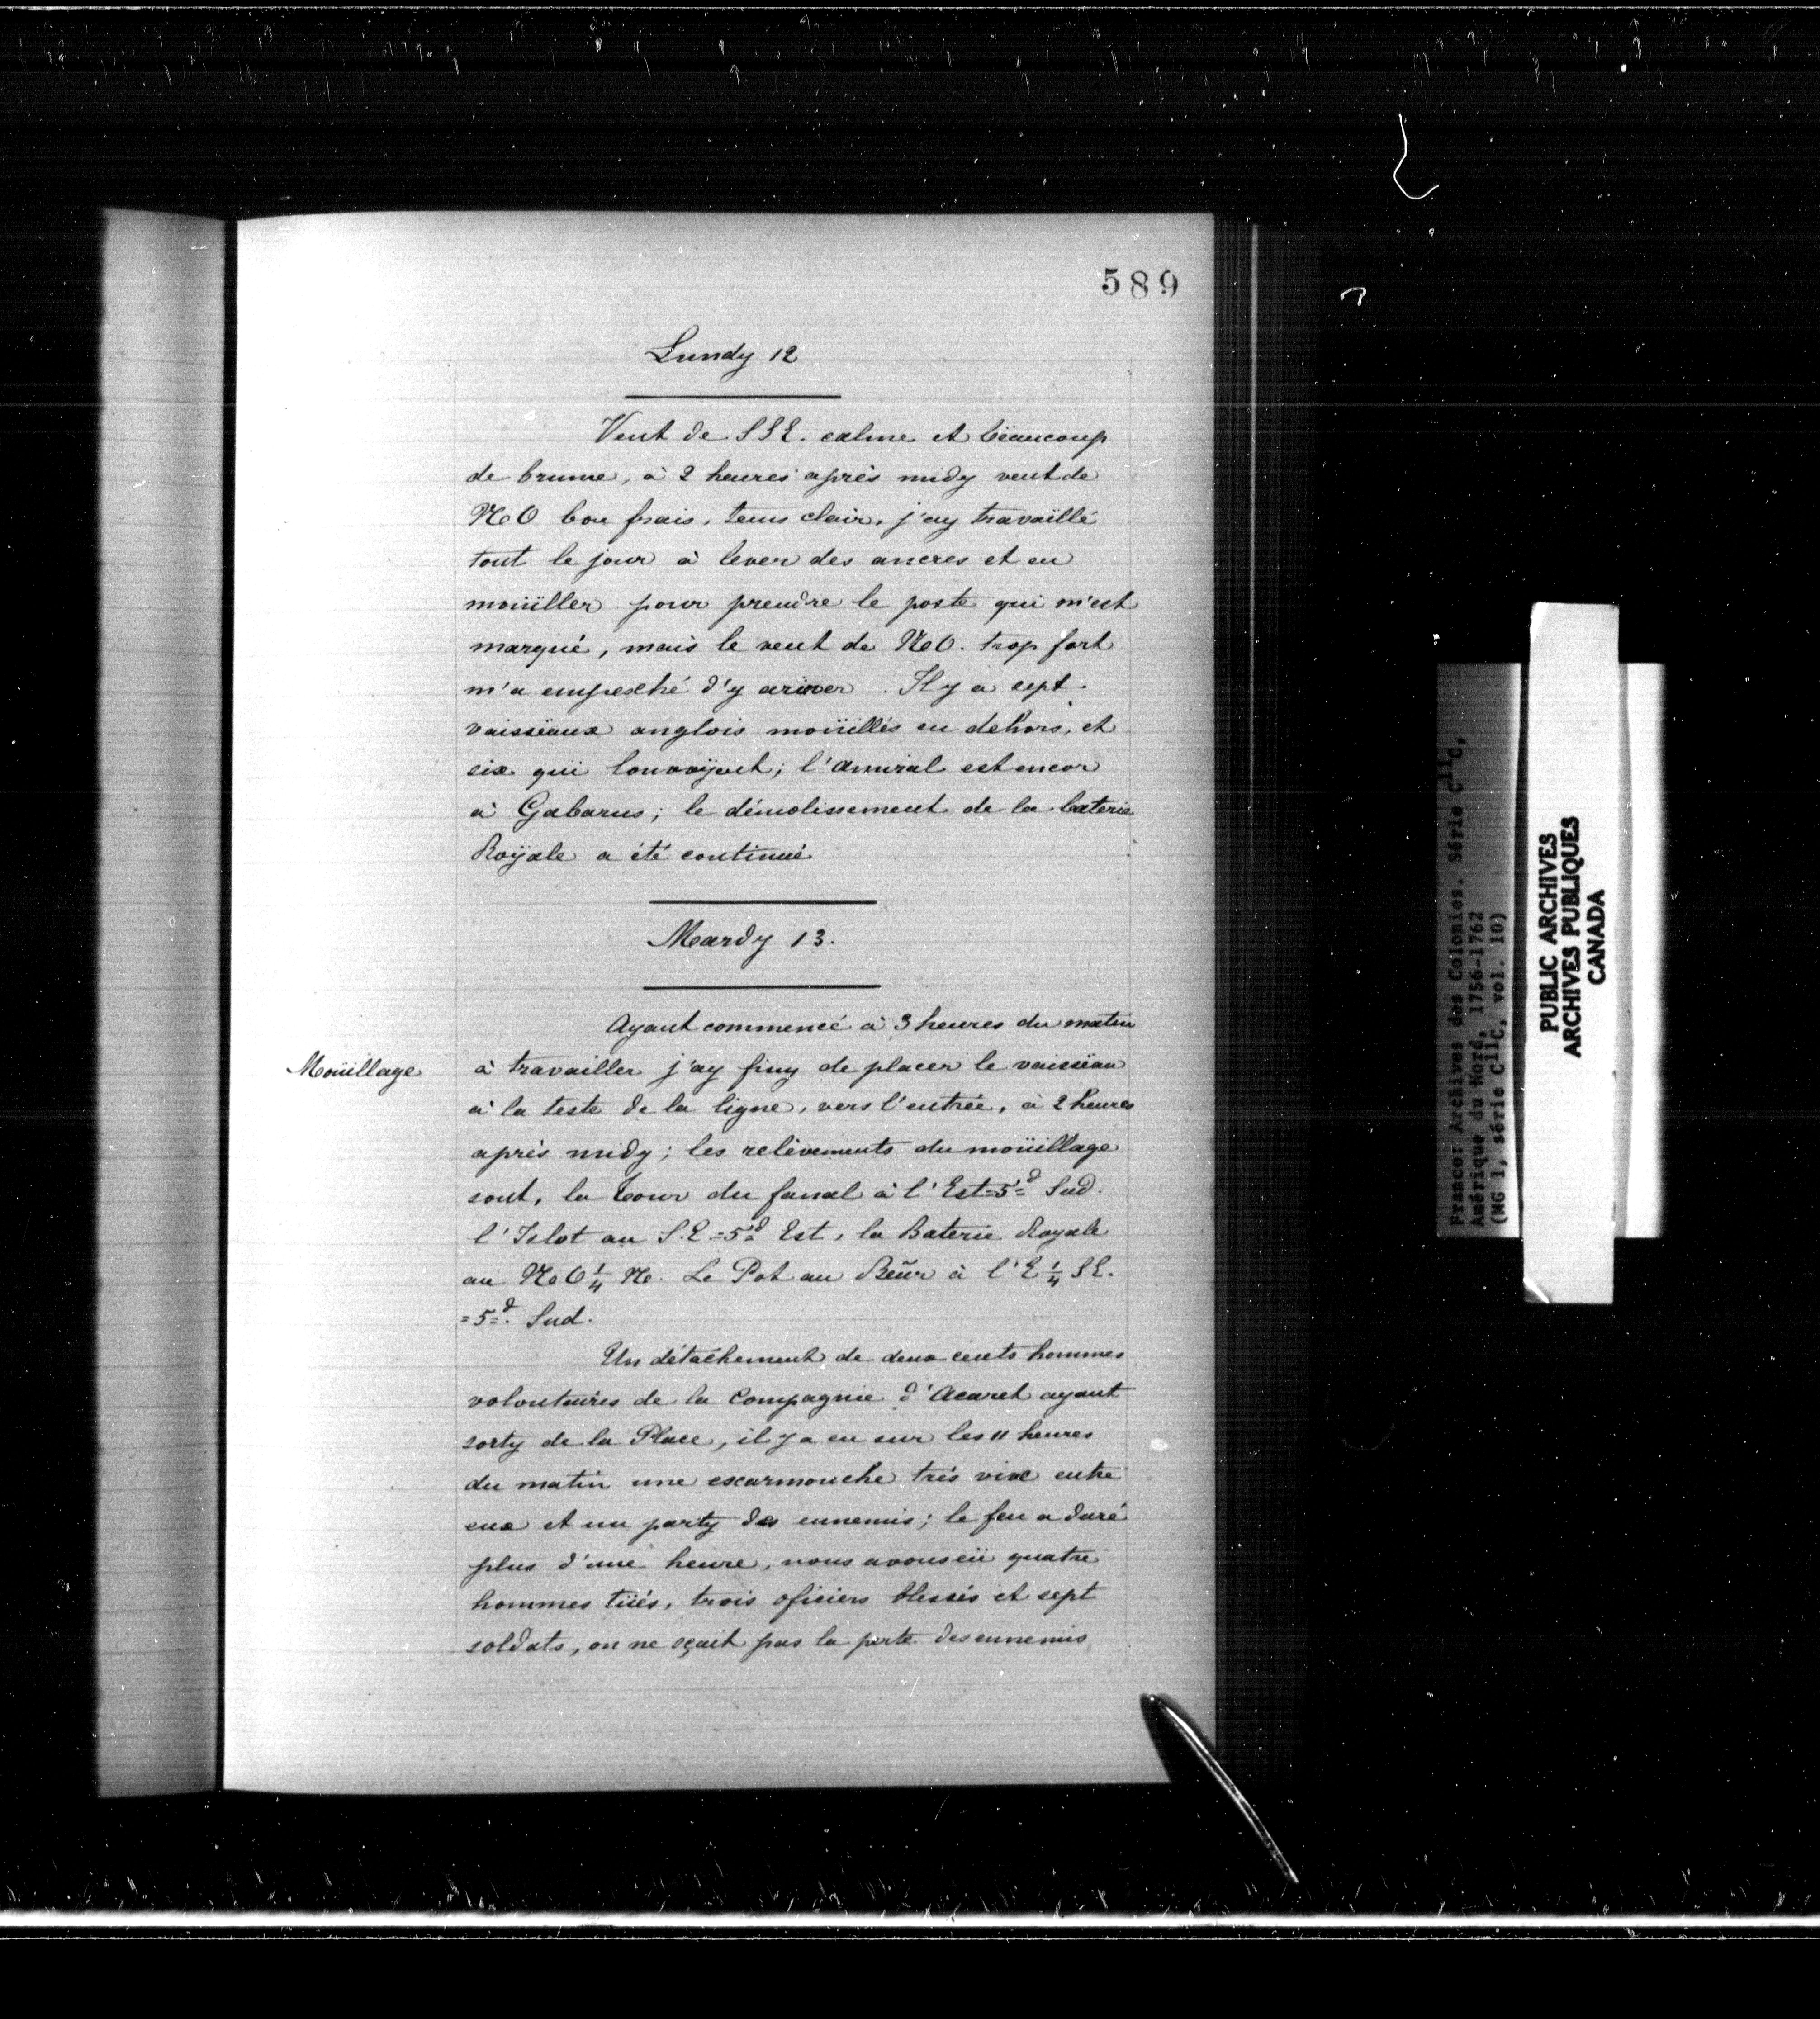 589
Lundy 12
Vent de SSE. calme et bëaucoup
de brume, à 2 heures après midy vent de
NO bon frais, tems clair, j'ay travaïllé
tout le jour à lever des ancres et en
moüiller pour prendre le poste qui m'est
marqué, mais le vent de NO. trop fort
m'a empesché d'y ariver. Il y a sept
vaissëaux anglois moüillés en dehors, et
six qui louvoÿent; l'amiral est encor
à Gabarus; le démolissement de la baterie
Roÿale a été continué
Mardy 13.
Ayant commencé à 3 heures du matin
Moüillage
à travailler j'ay finy de placer le vaissëau
à la teste de la ligne, vers l'entrée, à 2 heures
après midy; les relèvements du moüillage
sont, la Tour du fanal à l'Est=5=d Sud.
l'Islot au S.E=5=d Est, la Baterie Royale
au NO 1/4 N. Le Pot au Beür à l'E 1/4 SE.
=5=d. Sud.
Un détachement de deux cents hommes
volontaires de la Compagnie d'Acaret ayant
sorty de la Place, il y a eu sur les 11 heures
du matin une escarmouche très vive entre
eux et un party des ennemis; le feu a duré
plus d'une heure, nous avons eü quatre
hommes tüés, trois oficiers blessés et sept
soldats, on ne sçait pas la perte des ennemis
France: Archives des Colonies. Série C11C,
Amérique du Nord, 1756-1762
(MG 1, série C11C, vol. 10)
PUBLIC ARCHIVES
ARCHIVES PUBLIQUES
CANADA